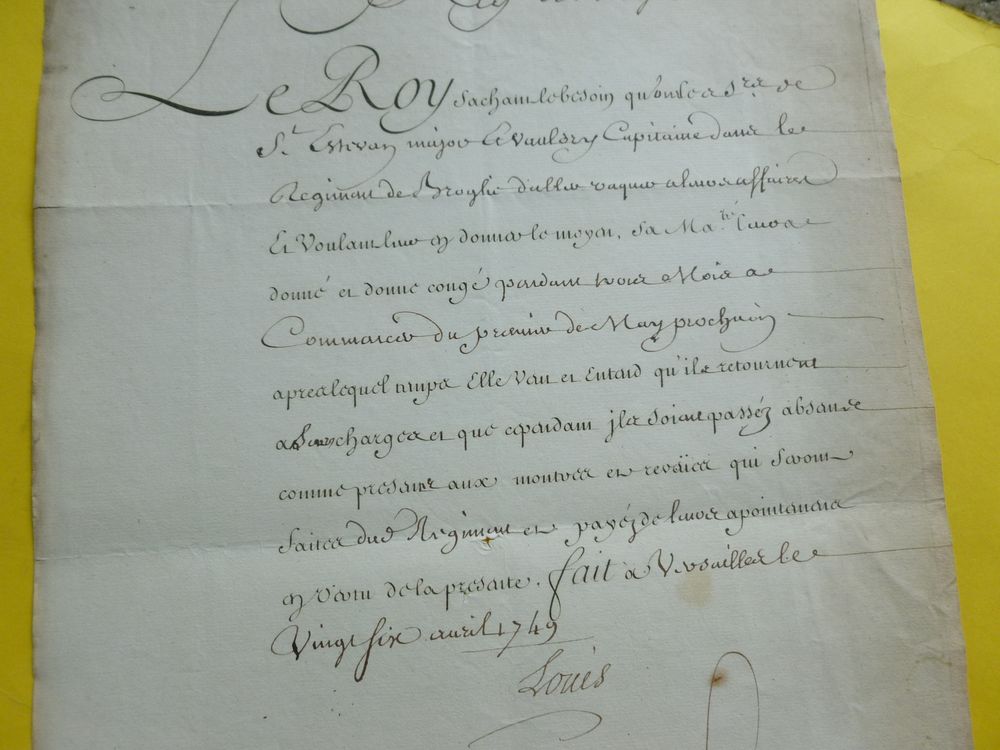 Le Roy sachant le besoin qu'ont les Srs. de
St. Estevan major et Vaulery Capitaine dans le
Regiment de Broglie d'aller vaquer a leurs affaires
Et Voulant leur en donner le moyen, sa Ma.té leur a
donné et donne congé pendant trois Mois a
Commancer du premier de May prochain
apres lequel temps Elle Veut et Entend qu'ils retournent
a leurs charges et que cependant jls soient passéz absens
comme presens aux montres et reveües qui seront
faites dud Regiment et payéz de leurs apointemens
en vertu de la presente. fait a Versailles le
Vingt six avril 1749
Louis